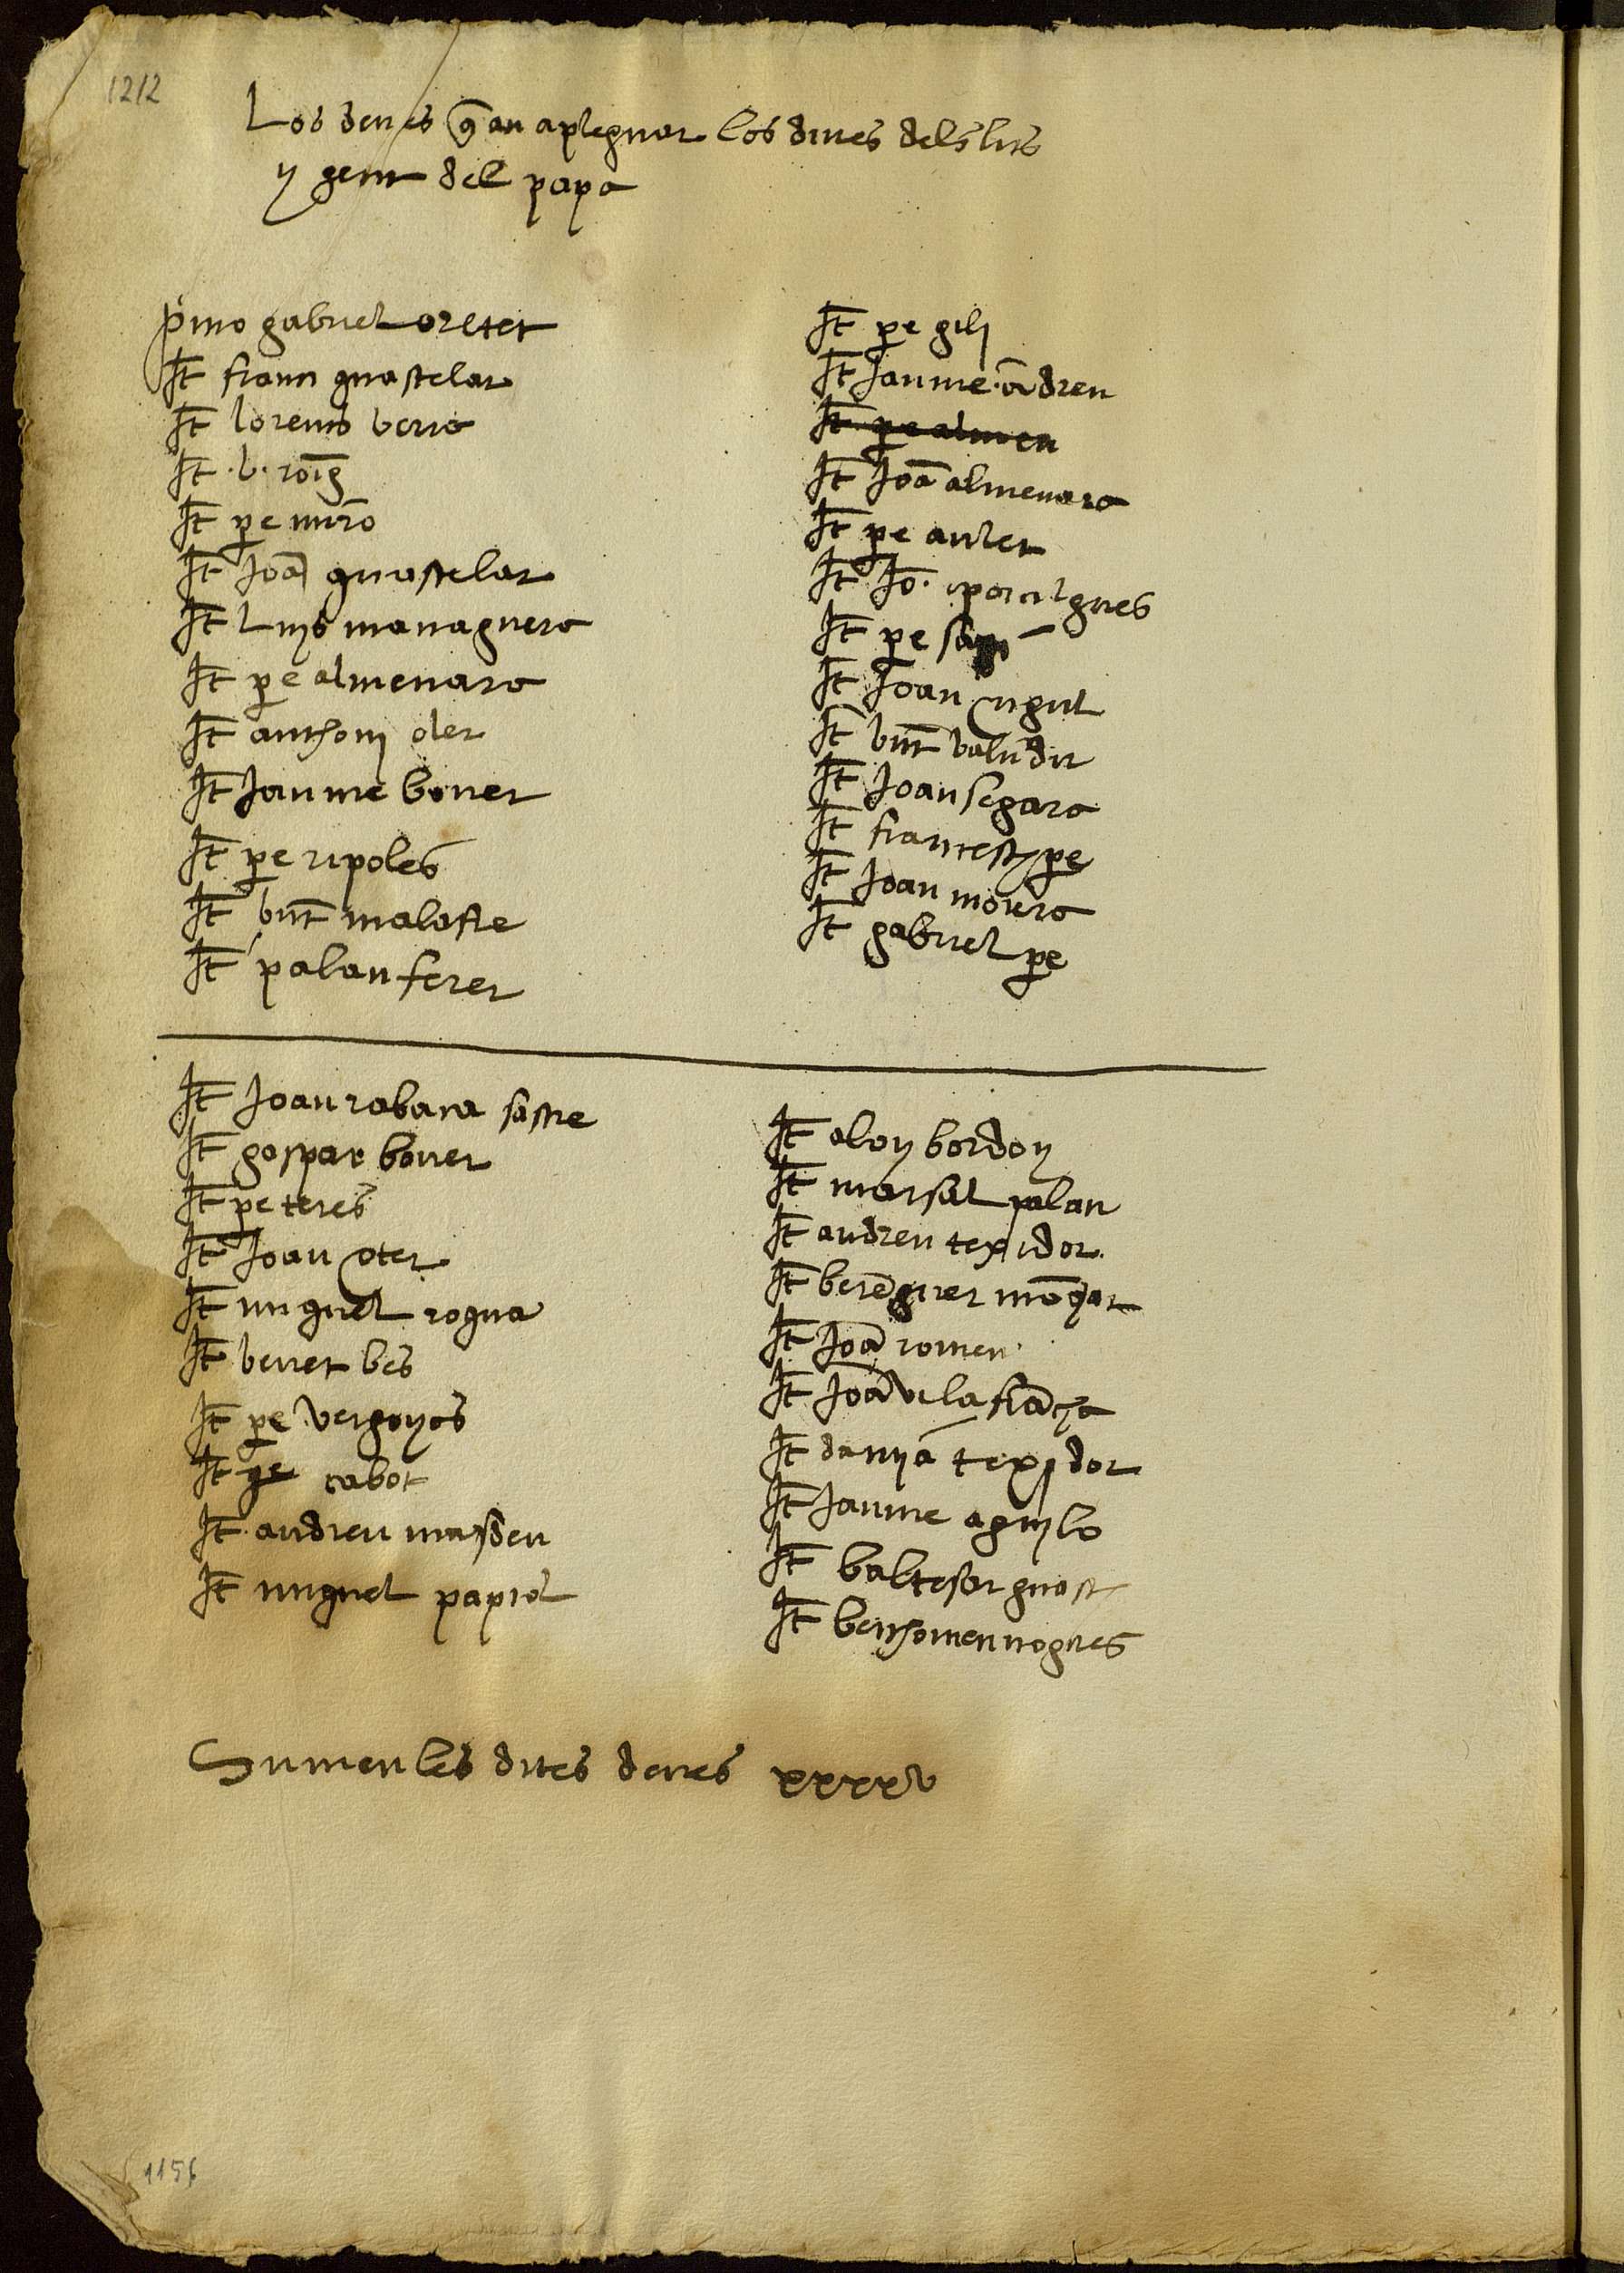 1212
Los denes q̃ an apleguar los dines dels lits
y gent del papa
pͥmo gabriel oretet
It̃ franci guastelar
It̃ lorens berra
It̃ .b. roig
It̃ pe miro
It̃ Joã guastelar
It̃ Luys managuera
It̃ pe almenara
It̃ anthoni oler
It̃ Jaume boner
It̃ pe ripoles
It̃ vint̃ malasre
It̃ palau ferer
It̃ pe gili
It̃ Jaume ãdreu
It̃ pe almen
It̃ Joã almenara
It̃ pe aulet
It̃ Jõ.
It̃ pe
It̃ Joan
It̃ vint̃
It̃ Joan segara
It̃ francesh pe
It̃ Joan mora
It̃ gabriel pe
It̃ Joan rabaça sastre
It̃ gaspar boner
It̃ pe teres
It̃ Joan oter
It̃ miguel rogua
It̃ benet bes
It̃ pe vergoyos
It̃ ge cabot
It̃ andreu masdeu
It̃ miguel papiol
It̃ aloy bordoy
It̃ marsal palau
It̃ andreu texidor
It̃ berẽguer mõgar
It̃ Joã romeu
It̃ Joã vilafrãcha
It̃ damiã texidor
It̃ Jaume aguylo
It̃ baltesar guasch
It̃ berthomeu nogues
Sumen les dites denes xxxxv
1156